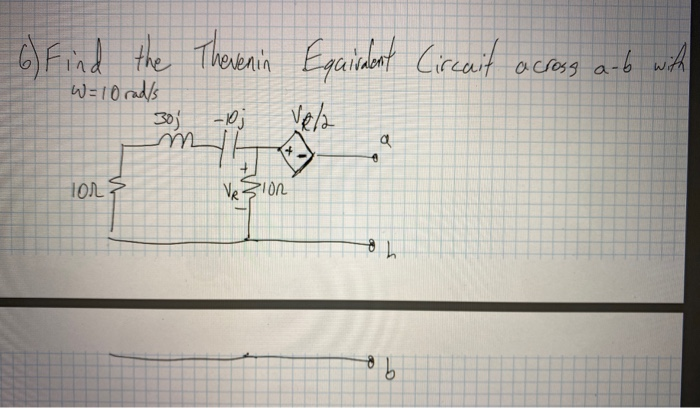 6) Find the Thevenin Equivalent Circuit across a-b with
ω=10 rad/s
30j -10j VR/2
+ - a
10Ω + VR - 10Ω
b
b